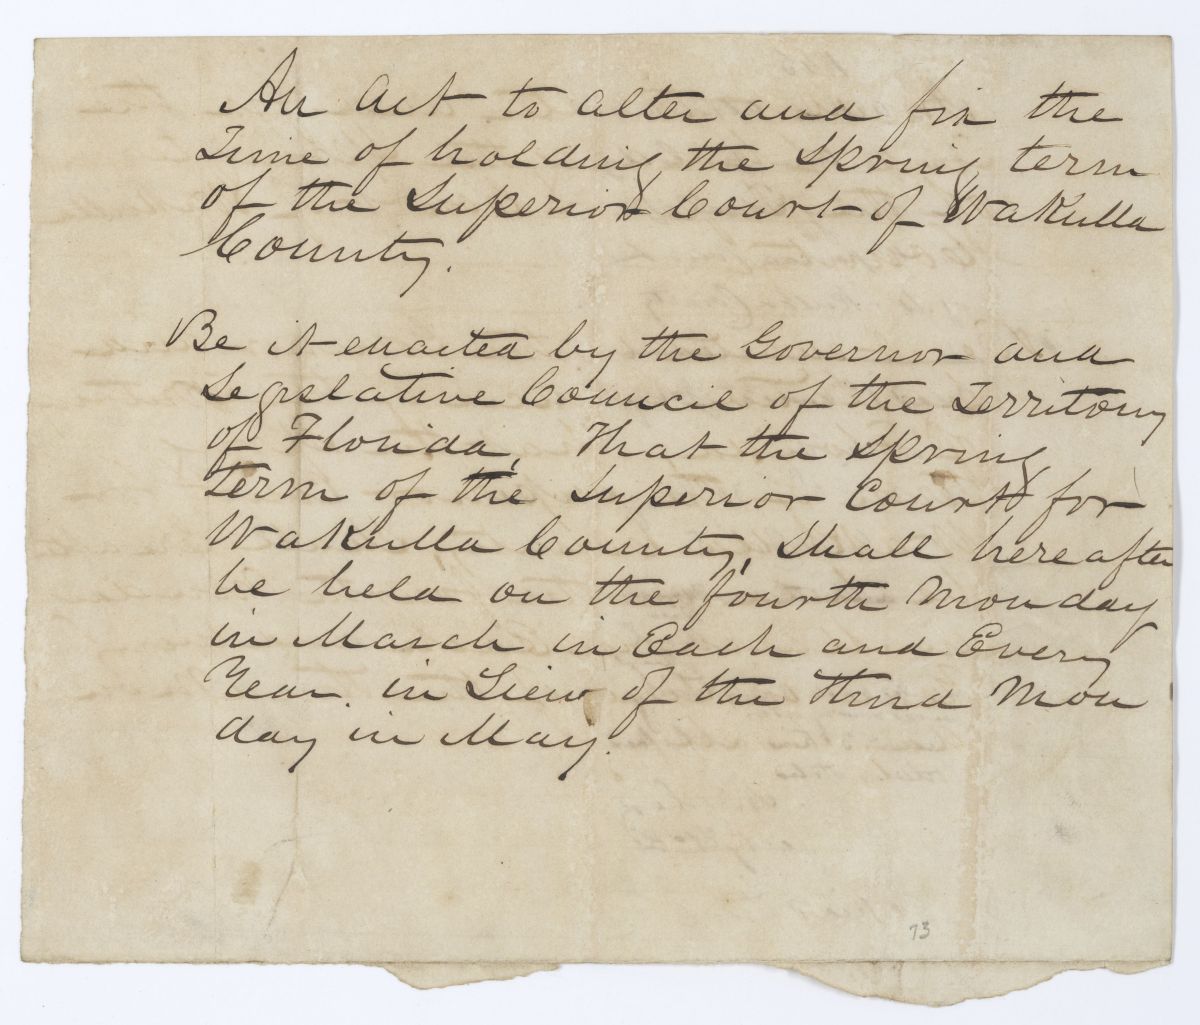 An Act to alter and fix the
Time of holding the Spring term
of the Superior Court of Wakulla
County.
Be it enacted by the Governor and
Legislative Council of the Territory
of Florida, That the Spring
term of the Superior Court for
Wakulla County, Shall hereafter
be held on the fourth Monday
in March in Each and Every
Year. in Liew of the third Mon
day in May.
73